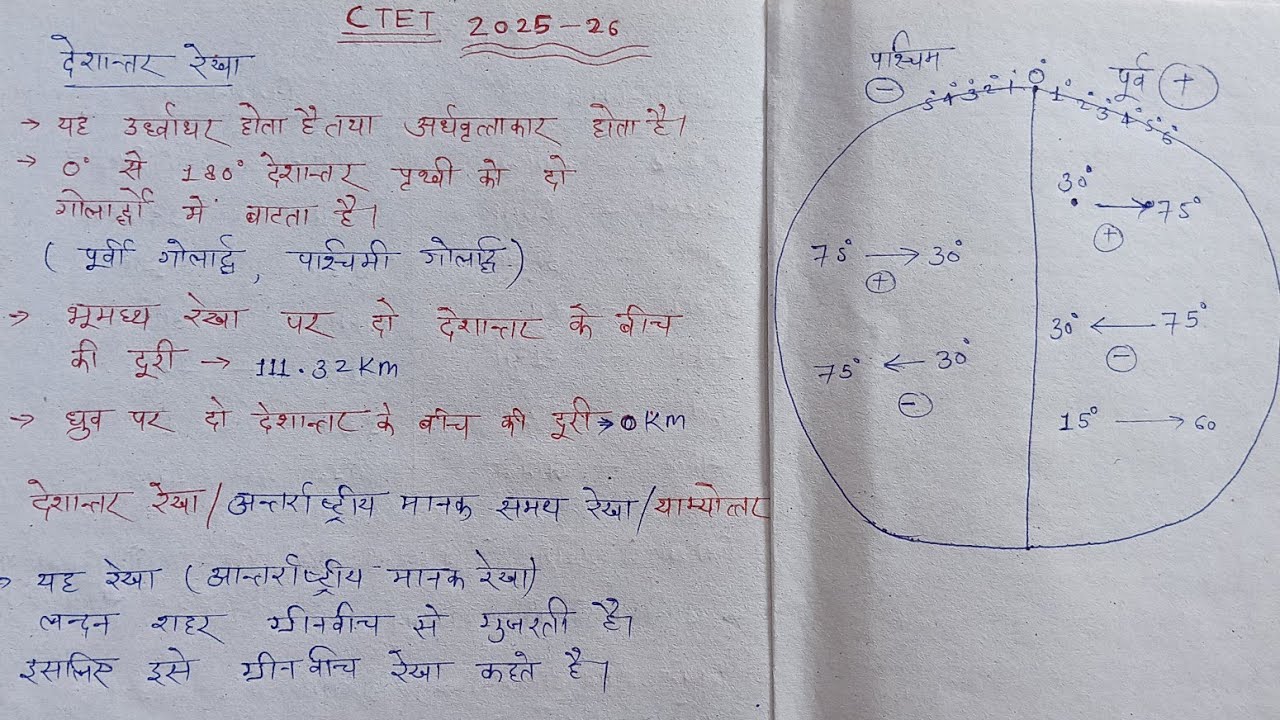 CTET 2025-26
देशान्तर रेखा
→ यह उर्ध्वाधर होता है तथा अर्धवृत्ताकार होता है।
→ 0° से 180° देशान्तर पृथ्वी को दो
गोलार्द्धो में बाटता है।
( पूर्वी गोलार्द्ध , पश्चिमी गोलार्द्ध )
→ भूमध्य रेखा पर दो देशान्तर के बीच
की दूरी → 111.32Km
→ ध्रुव पर दो देशान्तर के बीच की दूरी → 0 Km
देशान्तर रेखा/अन्तर्राष्ट्रीय मानक समय रेखा/याम्योत्तर
→ यह रेखा (आन्तर्राष्ट्रीय मानक रेखा)
लन्दन शहर ग्रीनवीच से गुजरती है।
इसलिए इसे ग्रीनवीच रेखा कहते है।
पश्चिम पूर्व +
-
5° 4° 3° 2° 1° 0° 1° 2° 3° 4° 5° 6°
30° → 75°
+
75° → 30°
+
30° ← 75°
-
75° ← 30°
-
15° → 60